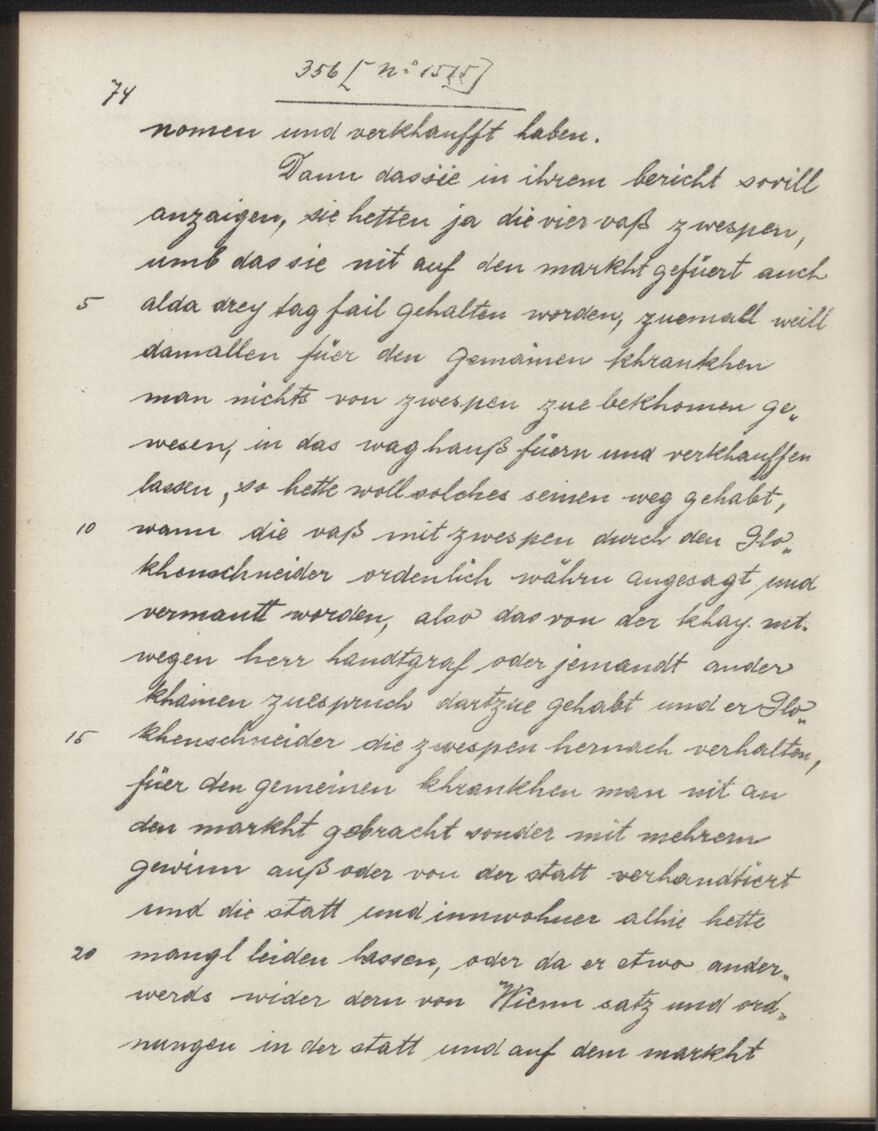 356 [N:o 1575]
74
nomen und verkhaufft haben.
Dann das sie in ihrem bericht sovill
anzaigen, sie hetten ja die vier vaß zwespen,
umb das sie nit auf den markht gefüert auch
5 alda drey tag fail gehalten worden, zuemall weill
damallen füer den gemainen khrankhen
man nichts von zwespen zue bekhomen ge„
wesen, in das waghauß füern und verkhauffen
lassen, so hette woll solches seinen weg gehabt,
10 wann die vaß mit zwespen durch den Glo„
khenschneider ordenlich währn angesagt und
vermautt worden, also das von der khay. mt.
wegen herr handtgraf oder jemandt ander
khainen zuespruch dartzue gehabt und er Glo„
15 khenschneider die zwespen hernach verhalten,
füer den gemeinen khrankhen man nit an
den markht gebracht sonder mit mehrern
gewinn auß oder von der statt verhandtiert
und die statt und innwohner alhie hette
20 mangl leiden lassen, oder da er etwo ander„
werds wider dern von Wienn satz und ord„
nungen in der statt und auf dem markht